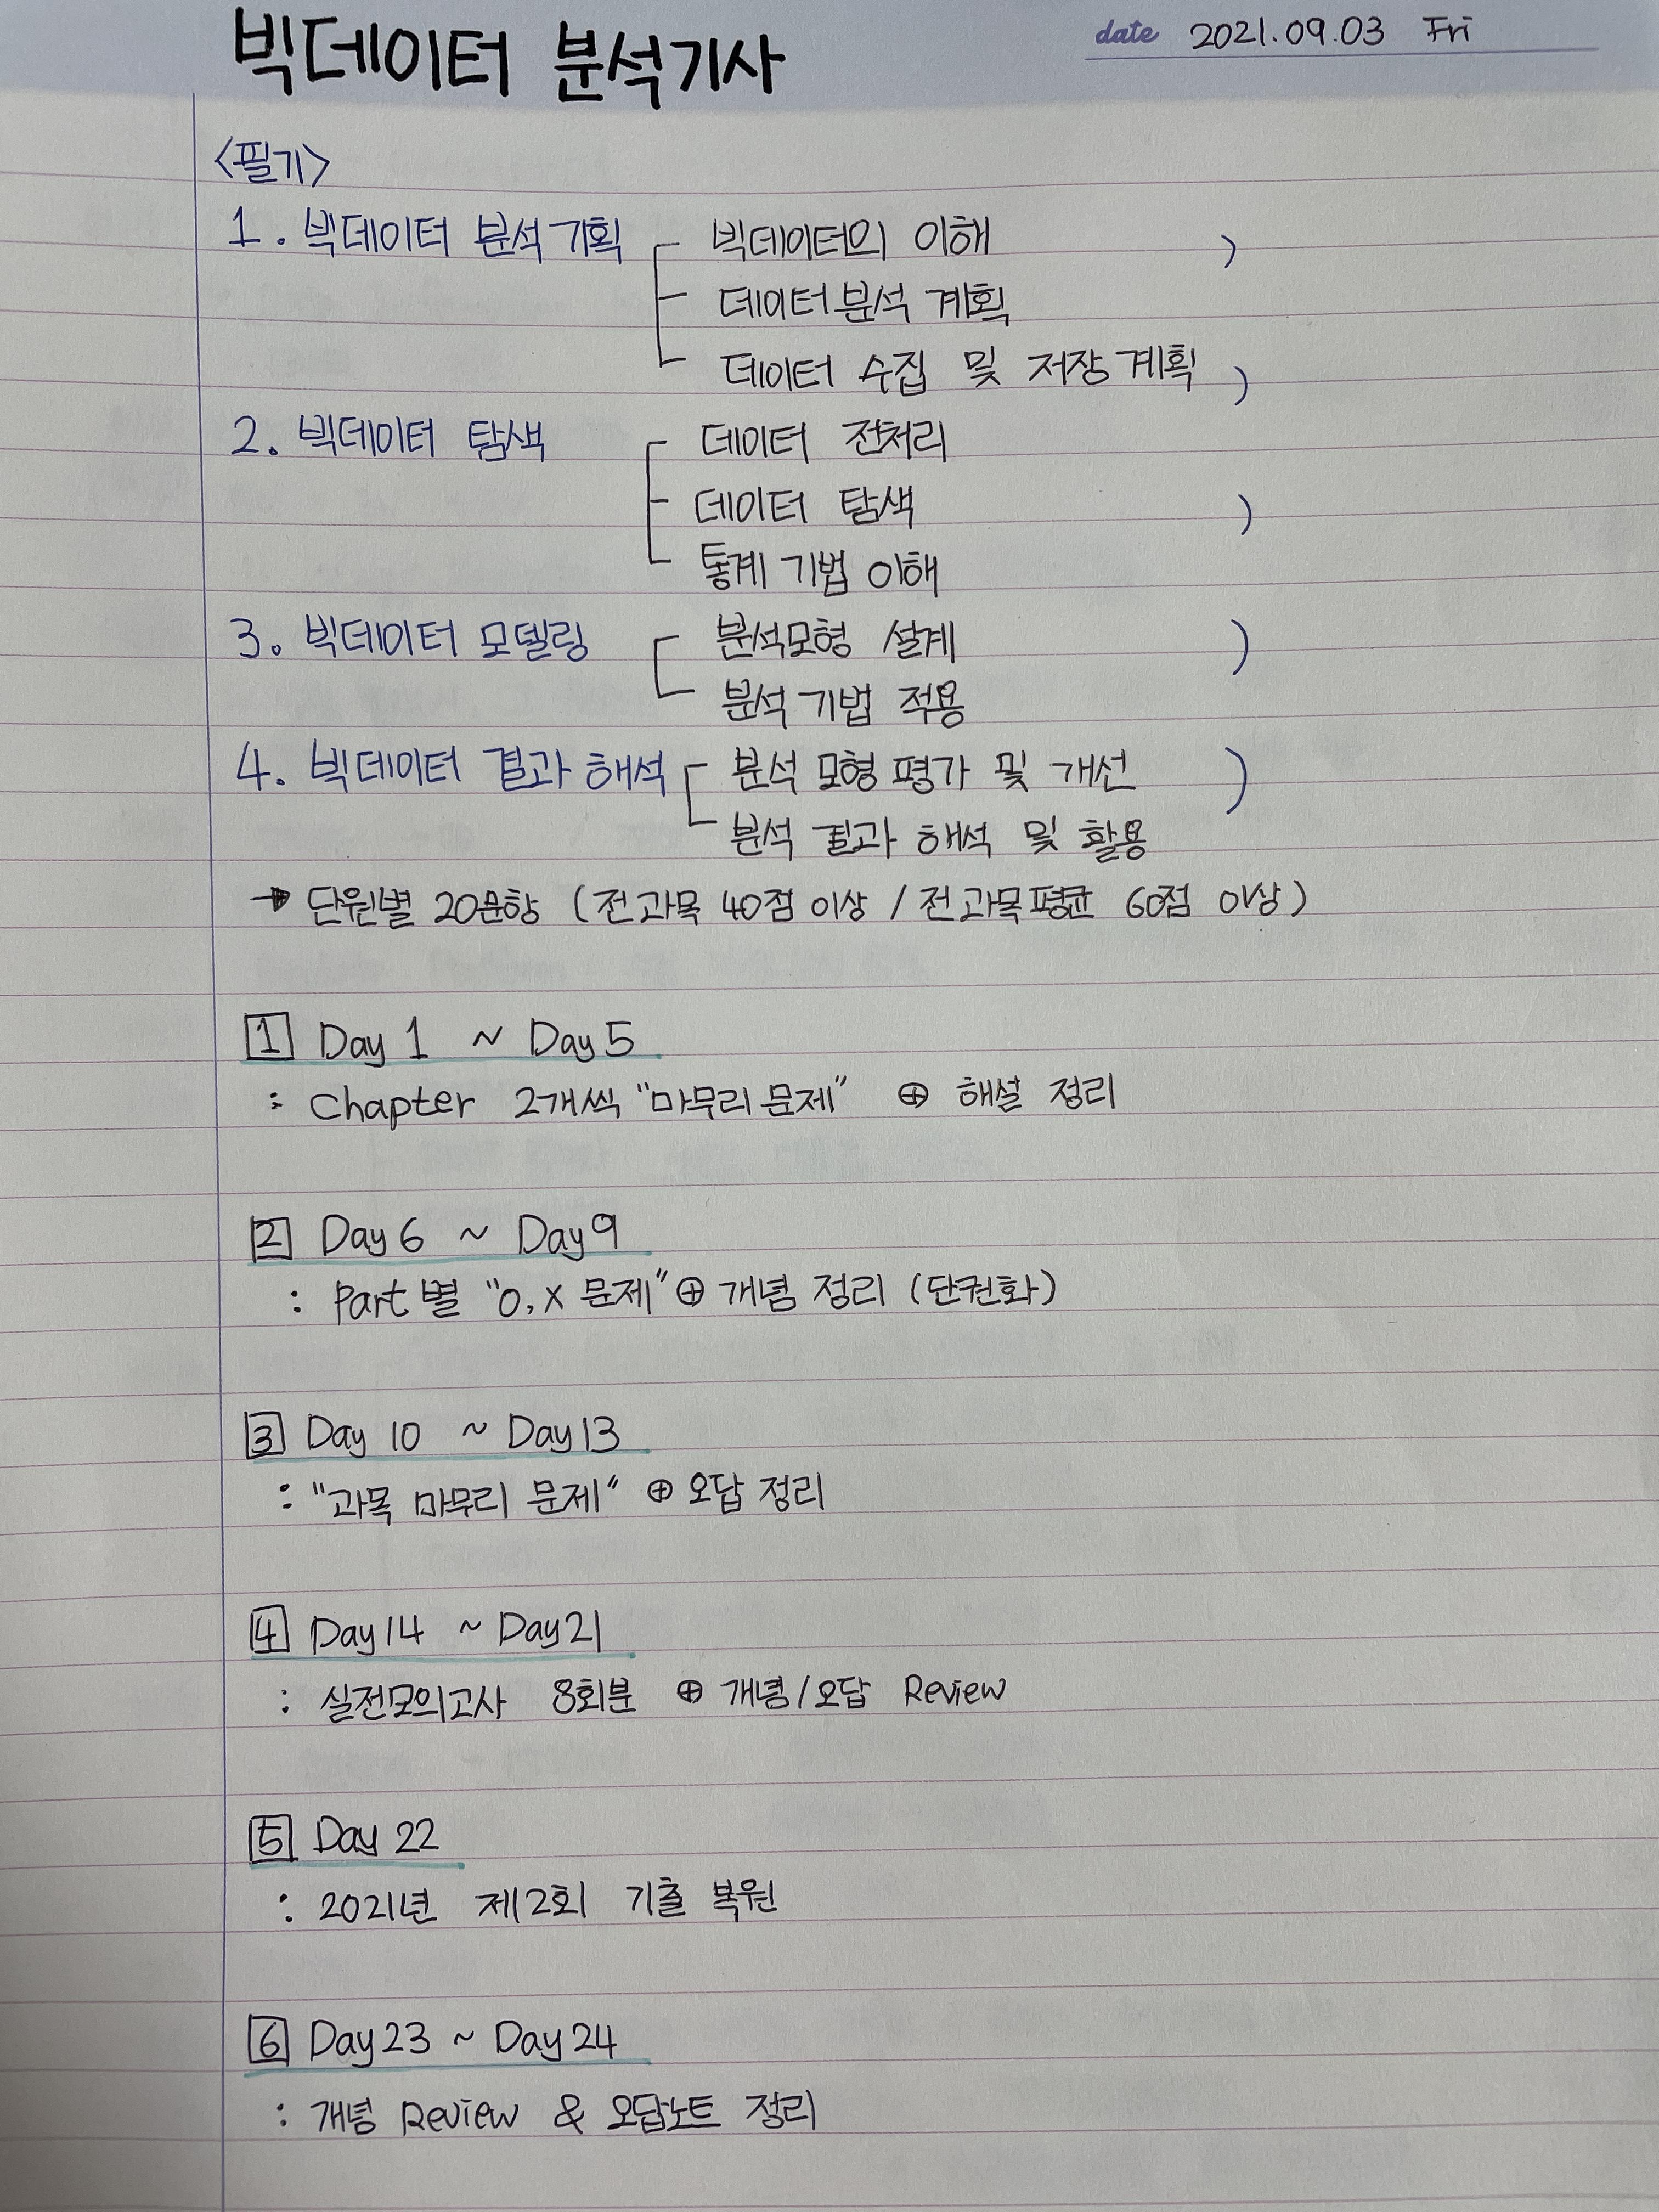 빅데이터 분석기사
date 2021.09.03 Fri
<필기>
1. 빅데이터 분석 기획 빅데이터의 이해 )
데이터 분석 계획
데이터 수집 및 저장 계획 )
2. 빅데이터 탐색 데이터 전처리
데이터 탐색 )
통계 기법 이해
3. 빅데이터 모델링 분석모형 설계 )
분석 기법 적용
4. 빅데이터 결과 해석 분석 모형 평가 및 개선 )
분석 결과 해석 및 활용
→ 단원별 20문항 (전과목 40점 이상 / 전과목 평균 60점 이상)
1 Day 1 ~ Day 5
: Chapter 2개씩 "마무리 문제" ⊕ 해설 정리
2 Day 6 ~ Day 9
: Part 별 "O, X 문제" ⊕ 개념 정리 (단권화)
3 Day 10 ~ Day 13
: "과목 마무리 문제" ⊕ 오답 정리
4 Day 14 ~ Day 21
: 실전모의고사 8회분 ⊕ 개념/오답 Review
5 Day 22
: 2021년 제2회 기출 복원
6 Day 23 ~ Day 24
: 개념 Review & 오답노트 정리